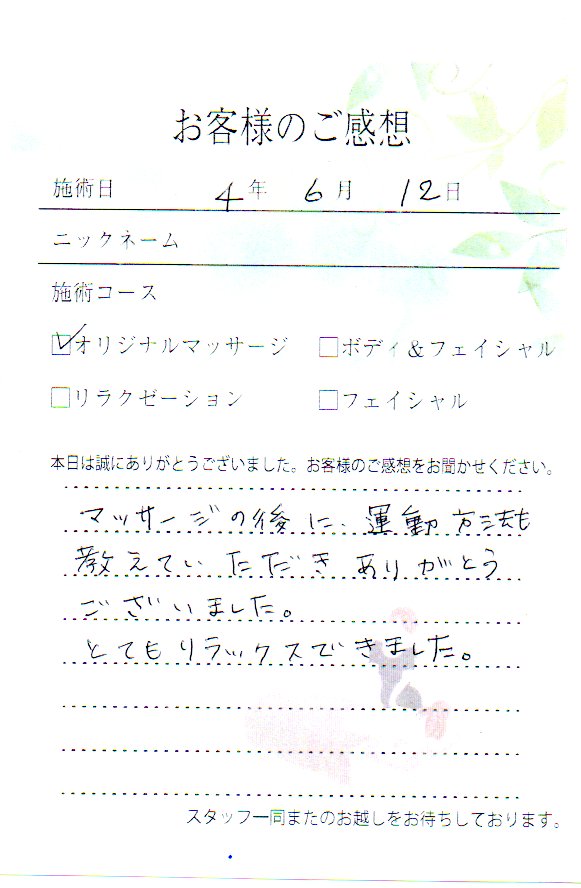 お客様のご感想
施術日 4年 6月 12日
ニックネーム
施術コース
☑オリジナルマッサージ □ボディ&フェイシャル
□リラクゼーション □フェイシャル
本日は誠にありがとうございました。お客様のご感想をお聞かせください。
マッサージの後に、運動方法も
教えていただきありがとう
ございました。
とてもリラックスできました。
スタッフ一同またのお越しをお待ちしております。